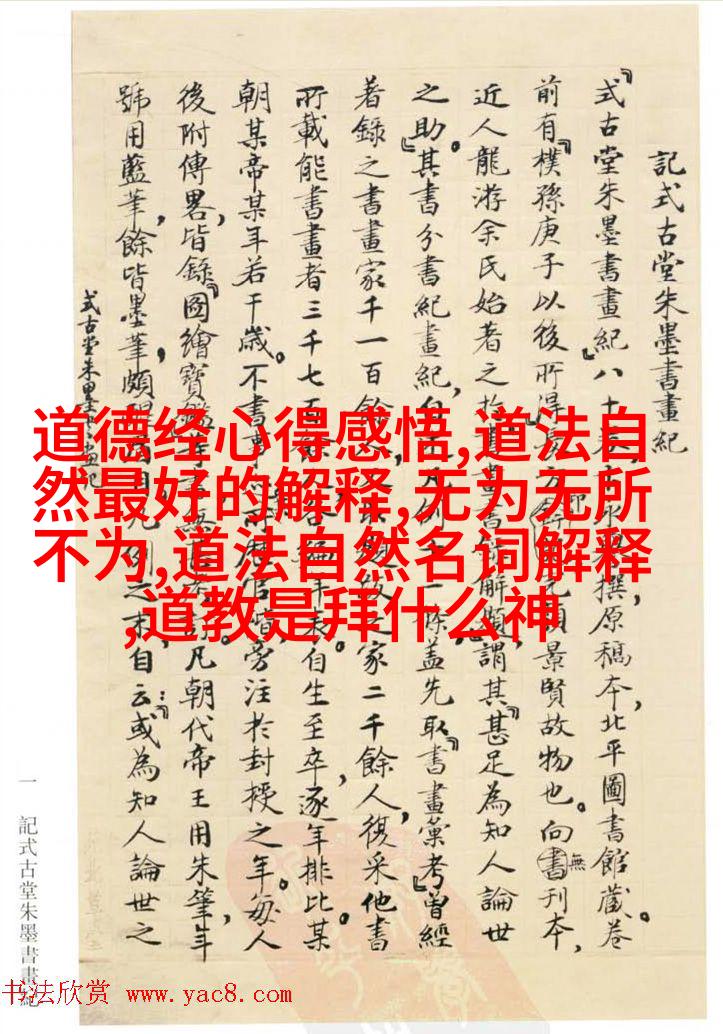 記式古堂朱墨書畫紀
『式古堂朱墨書畫紀』八十卷 撰原稿本，北平圖書館藏。卷
前有『樸孫庚子以後所得 景賢故物也。向無書刊本，
近人龍游余氏始著之於 解題，謂其『甚足為知人論世
之助。』其書分書紀畫紀， 凡例十一條，蓋先取『書畫彙考』曾經
著錄之書畫家千一百餘 之家二千餘人，復采他書
所載能書畫者三千七百 年表。自生至卒，逐年排比某
朝某帝某年若干歲。不書事 皆旁注於封授之年。每人
後附傳畧，皆錄『圖繪寶鑑 凡朝代帝王用朱筆，年
號用藍筆，餘皆墨筆，頗 凡例之末，自云：或為知人論世之
式古堂朱墨書畫記
一 記式古堂朱墨書畫紀
道德经心得感悟,道法自
然最好的解释,无为无所
不为,道法自然名词解释
,道教是拜什么神
书法欣赏 www.yac8.com